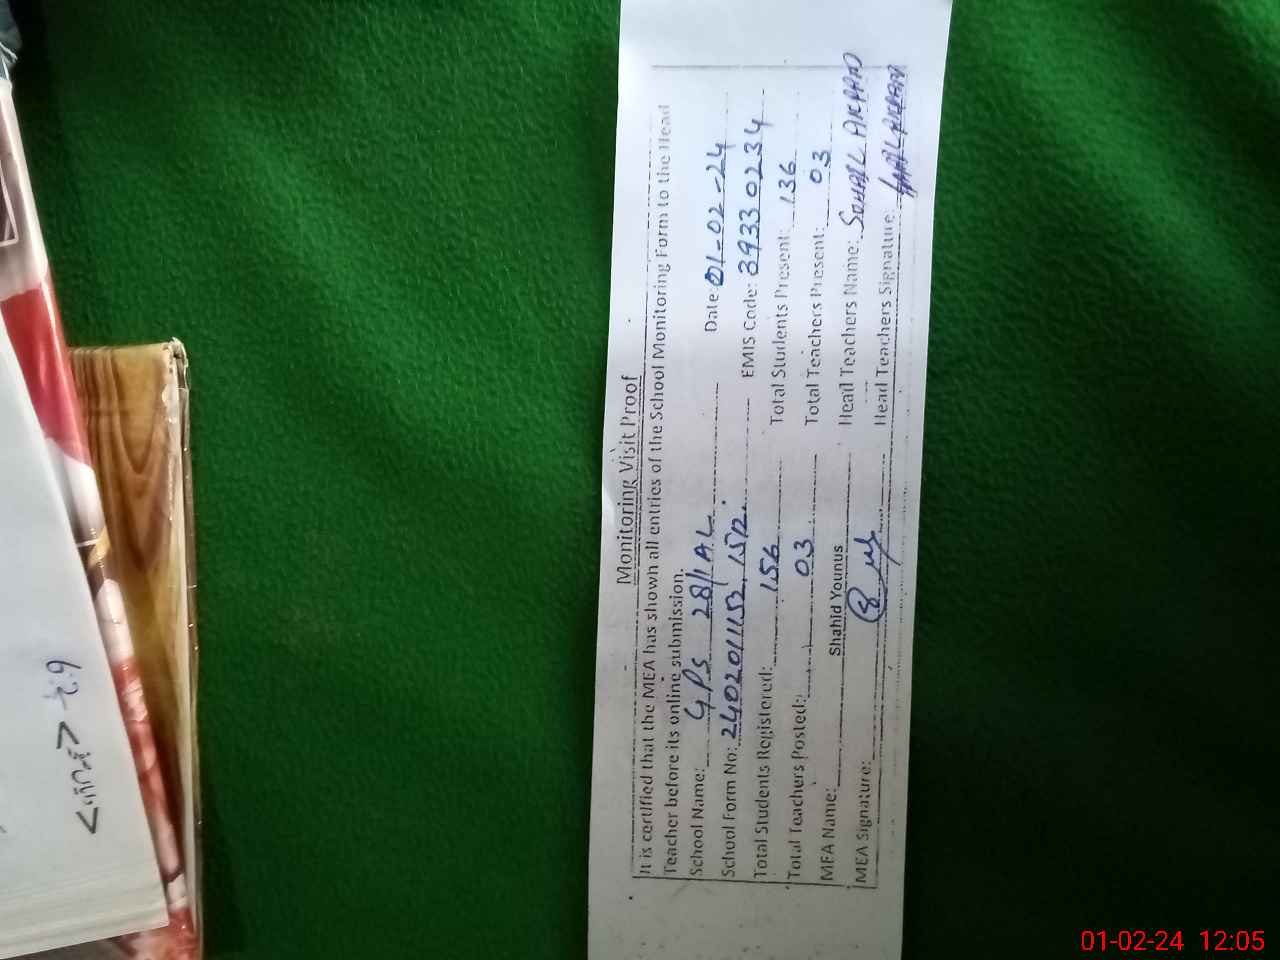 Monitoring Visit Proof
It is certified that the MEA has shown all entries of the School Monitoring Form to the Head
Teacher before its online submission.
School Name: GPS 28/1AL Date: 01-02-24
School Form No: 2402011152.1512. EMIS Code: 39330234
Total Students Registered: 156 Total Students Present: 136
Total Teachers Posted: 03 Total Teachers Present: 03
MEA Name: Shahid Younus Head Teachers Name: SOHAIL AKHAD
MEA Signature: Head Teachers Signature:
01-02-24 12:05